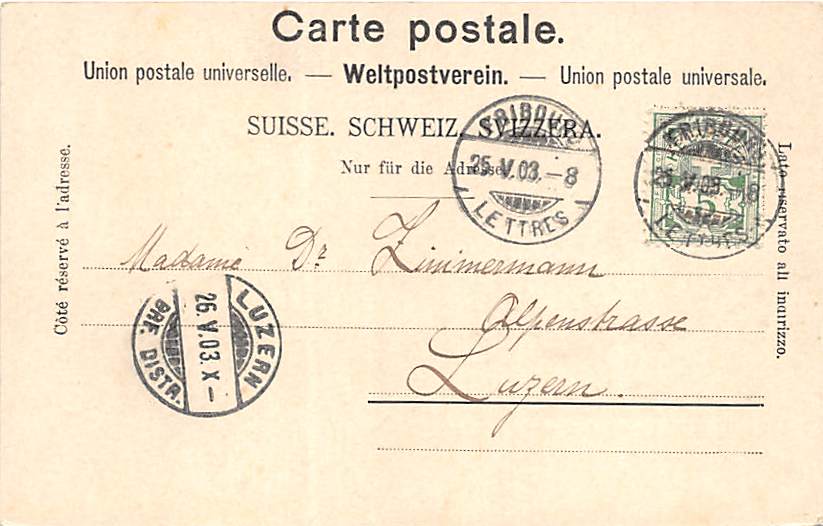 Carte postale.
Union postale universelle. — Weltpostverein. — Union postale universale.
SUISSE. SCHWEIZ. SVIZZERA.
Nur für die Adresse.
Côté réservé à l'adresse.
Lato riservato all indirizzo.
FRIBOURG
25.V.03.–8
LETTRES
FRIBOURG
25.V.03.–8
LETTRES
5
Madame Dr Zimmermann
Alpenstrasse
Luzern.
LUZERN
26.V.03.X–
BRF. DISTR.